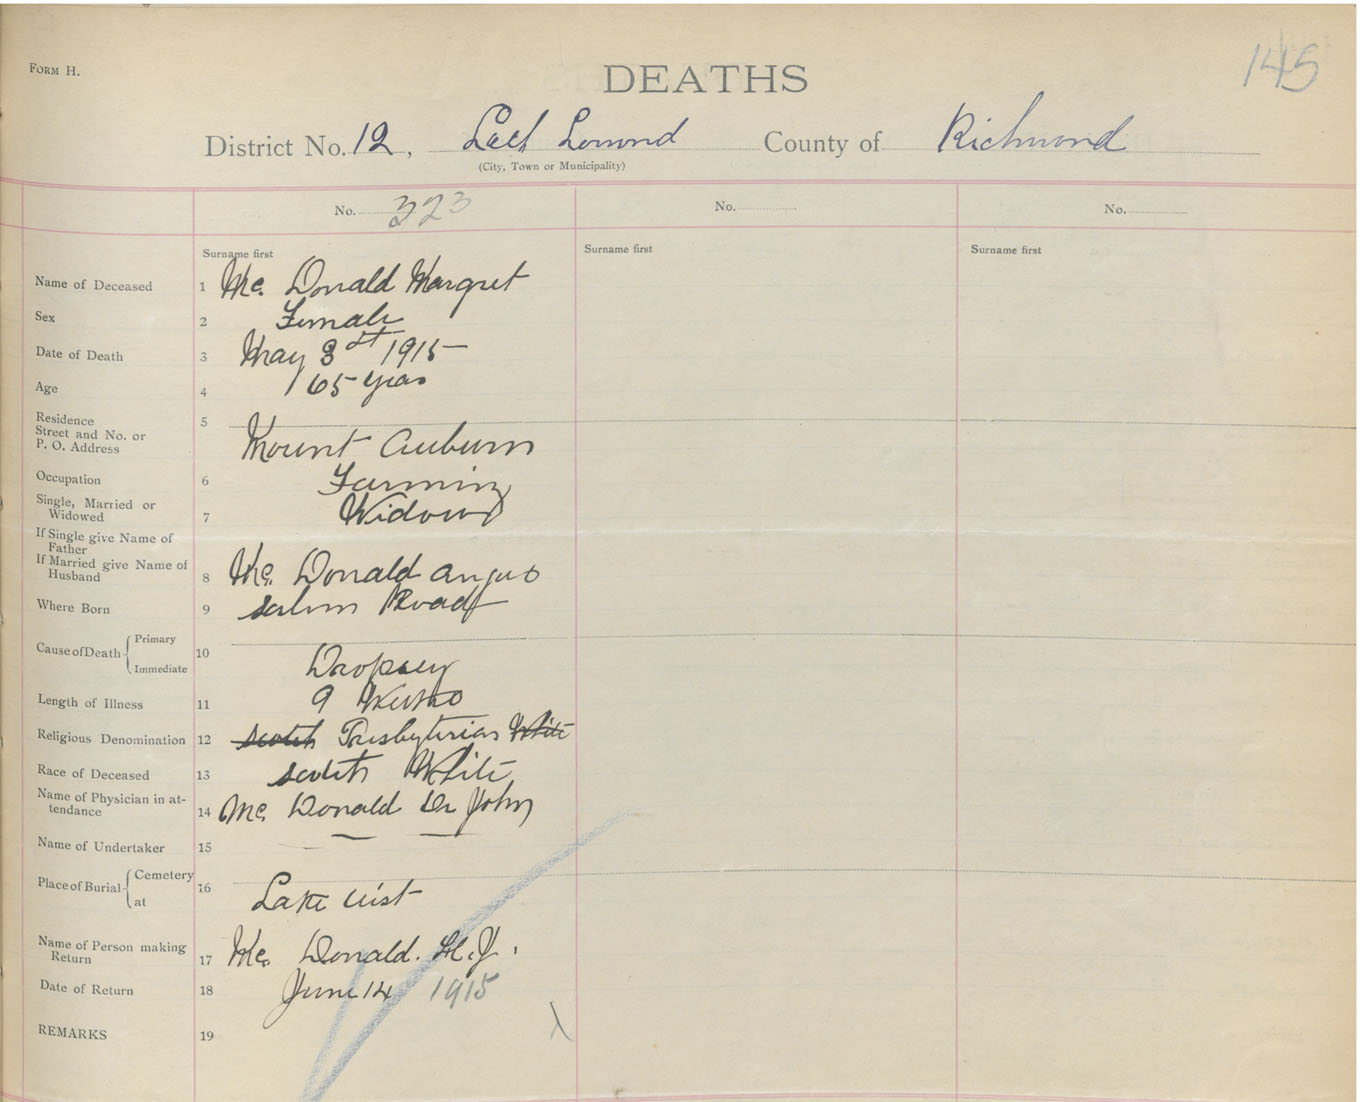 FORM H.
145
DEATHS
District No. 12, Loch Lomond County of Richmond
(City, Town or Municipality)
No. 323 No. No.
Surname first Surname first Surname first
Name of Deceased 1 Mc. Donald Margret
Sex 2 Female
Date of Death 3 May 1915
Age 4 65 years
Residence 5
Street and No. or
P. O. Address Mount Auburn
Occupation 6 Farming
Single, Married or
Widowed 7 Widow
If Single give Name of
Father
If Married give Name of
Husband 8 Mc. Donald angus
Where Born 9 Salem Road
Cause of Death Primary 10
Immediate Dropsey
Length of Illness 11 9 Weeks
Religious Denomination 12 Scotch Presbyterian White
Race of Deceased 13 Scotch White
Name of Physician in at-
tendance 14 Mc. Donald Dr John
Name of Undertaker 15
Place of Burial Cemetery 16
at Lake Uist
Name of Person making
Return 17 Mc. Donald. J.
Date of Return 18 June 14 1915
REMARKS 19